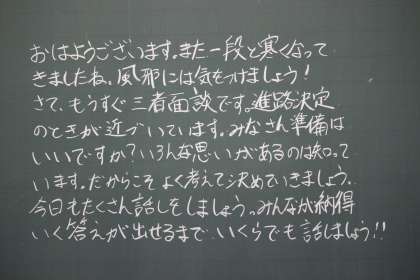 おはようございます。また一段と寒くなって
きましたね、風邪には気をつけましょう!
さて、もうすぐ三者面談です。進路決定
のときが近づいています。みなさん準備は
いいですか?いろんな思いがあるのは知って
います。だからこそよく考えて決めていきましょう。
今日もたくさん話しをしましょう。みんなが納得
いく答えが出せるまで いくらでも話しましょう!!